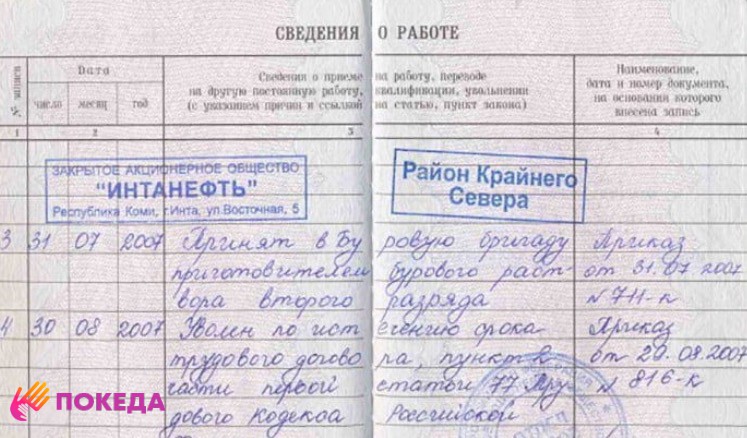 СВЕДЕНИЯ О РАБОТЕ
№ записи
Дата
Сведения о приеме на работу, переводе
на другую постоянную работу, квалификации, увольнении
(с указанием причин и ссылкой на статью, пункт закона)
Наименование,
дата и номер документа,
на основании которого
внесена запись
число месяц год
1 2 3 4
ЗАКРЫТОЕ АКЦИОНЕРНОЕ ОБЩЕСТВО
"ИНТАНЕФТЬ"
Республика Коми, г.Инта, ул.Восточная, 5
Район Крайнего
Севера
3 31 07 2007 Принят в Буровую бригаду Приказ
приготовителем бурового раст- от 31.07 2007
вора второго разряда N 711-к
4 30 08 2007 Уволен по истечению срока Приказ
трудового договора, пункт 2 от 29.08.2007
части первой статьи 77 Тру- N 816-к
дового Кодекса Российской
ПОКЕДА